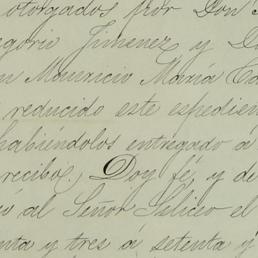 otorgados por Don
egorio Jimenez y D
n Mauricio María Ca
reducido este espedien
habiéndolos entregado á
recibo. Doy fé, y de
ó al Señor Silicio el
nta y tres á setenta y